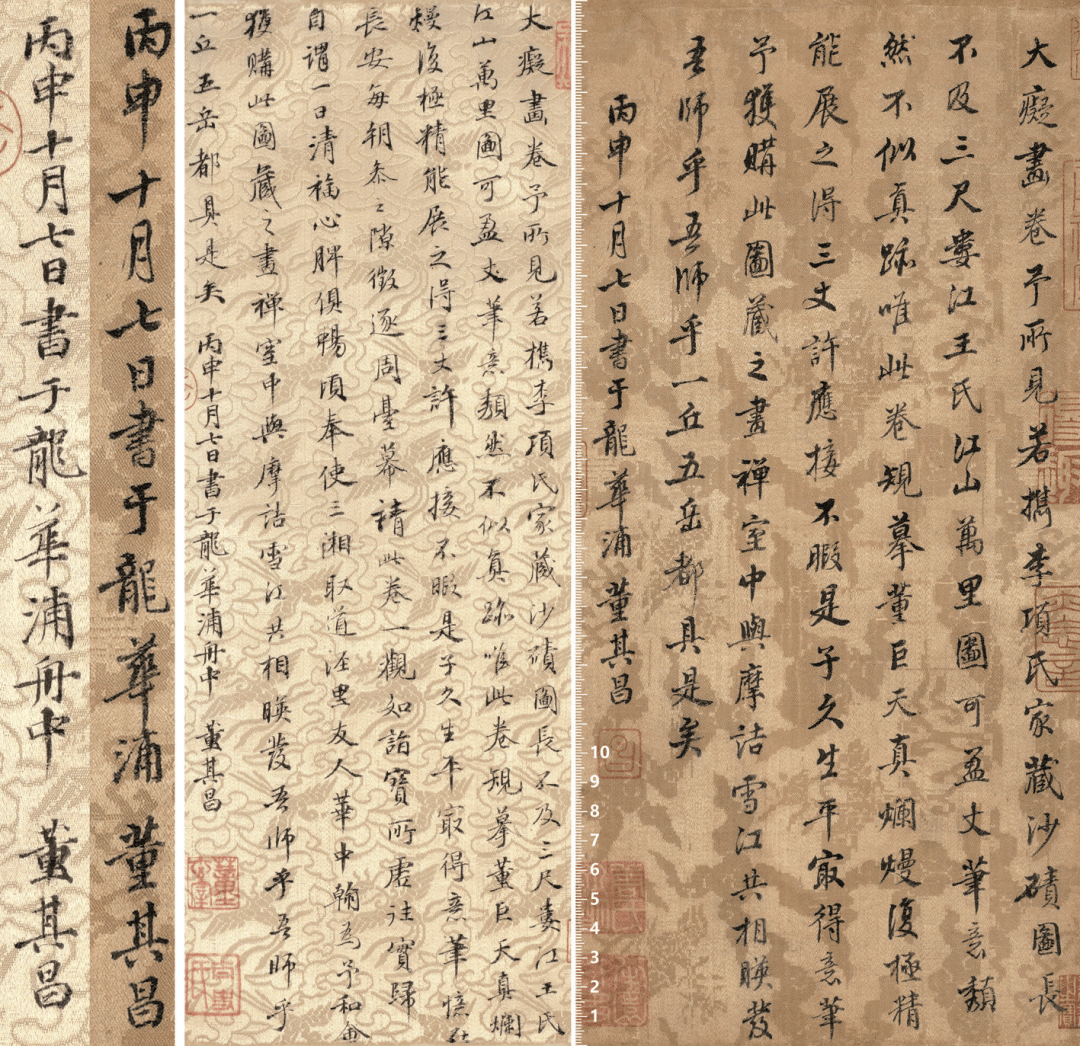 大癡畫卷予所見若檇李項氏家藏沙磧圖長
不及三尺婁江王氏江山萬里圖可盈丈筆意頹
然不似真跡唯此卷規摹董巨天真爛熳復極精
能展之得三丈許應接不暇是子久生平最得意筆
予獲購此圖藏之畫禪室中與摩詰雪江共相映發
吾師乎吾師乎一丘五岳都具是矣
丙申十月七日書于龍華浦董其昌
10
9
8
7
6
5
4
3
2
1
大癡畫卷予所見若檇李項氏家藏沙磧圖長不及三尺婁江王氏
江山萬里圖可盈丈筆意頹然不似真跡唯此卷規摹董巨天真爛
熳復極精能展之得三丈許應接不暇是子久生平最得意筆憶在
長安每朝參之隙徵逐周臺幕請此卷一觀如詣寶所虛往實歸
自謂一日清福心脾俱暢頃奉使三湘取道涇里友人華中翰為予和會
獲購此圖藏之畫禪室中與摩詰雪江共相映發吾師乎吾師乎
一丘五岳都具是矣 丙申十月七日書于龍華浦舟中 董其昌
丙申十月七日書于龍華浦 董其昌
丙申十月七日書于龍華浦舟中 董其昌